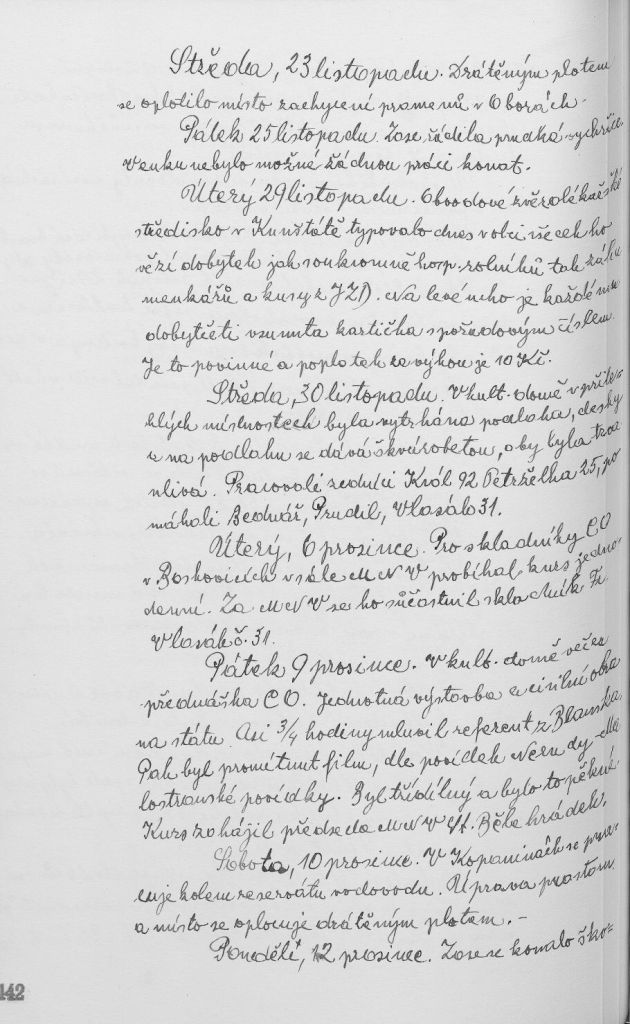 Středa, 23 listopadu. Drátěným plotem
se oplotilo místo zachycení pramenů v Oborách.
Pátek 25 listopadu. Zase řádila prudká vychřice
Venku nebylo možné žádnou práci konat.
Úterý 29 listopadu. Obvodové zvěrolékařské
středisko v Kunštátě typovalo dnes v obci všecek ho
vězí dobytek jak soukromně hosp. rolníků tak záhu
menkářů a kusy z JZD. Na levé ucho je každému
dobytčeti vsunuta kartička s pořadovým číslem.
Je to povinné a poplatek za výkon je 10 Kč.
Středa, 30 listopadu. V kult. domě v přile-
hlých místnostech byla vytrhána podlaha, desky
a na podlahu se dává škvárobeton, aby byla trva
nlivá. Pracovali zedníci Král 92 Petrželka 25, po
máhali Bednář, Prudil, Vlasák 31.
Úterý, 6 prosince. Pro skladníky CO
v Boskovicích v sále MNV probíhal kurs jedno-
denní. Za MNV se ho súčastnil skladník Fr.
Vlasák č. 31.
Pátek 9 prosince. V kult. domě večer
přednáška CO. Jednotná výstavba a civilní obra
na státu. Asi 3/4 hodiny mluvil referent z Blanska
Pak byl promítnut film, dle povídek Nerudy Ma
lostranské povídky. Byl třídílný a bylo to pěkné
Kurs zahájil předseda MNV St. Běhe hrádek.
Sobota, 10 prosince. V Kopaninách se prac
cuje kolem reservátu vodovodu. Úprava prostoru
a místo se oplocuje drátěným plotem. -
Pondělí, 12 prosince. Zase se konalo ško-
142